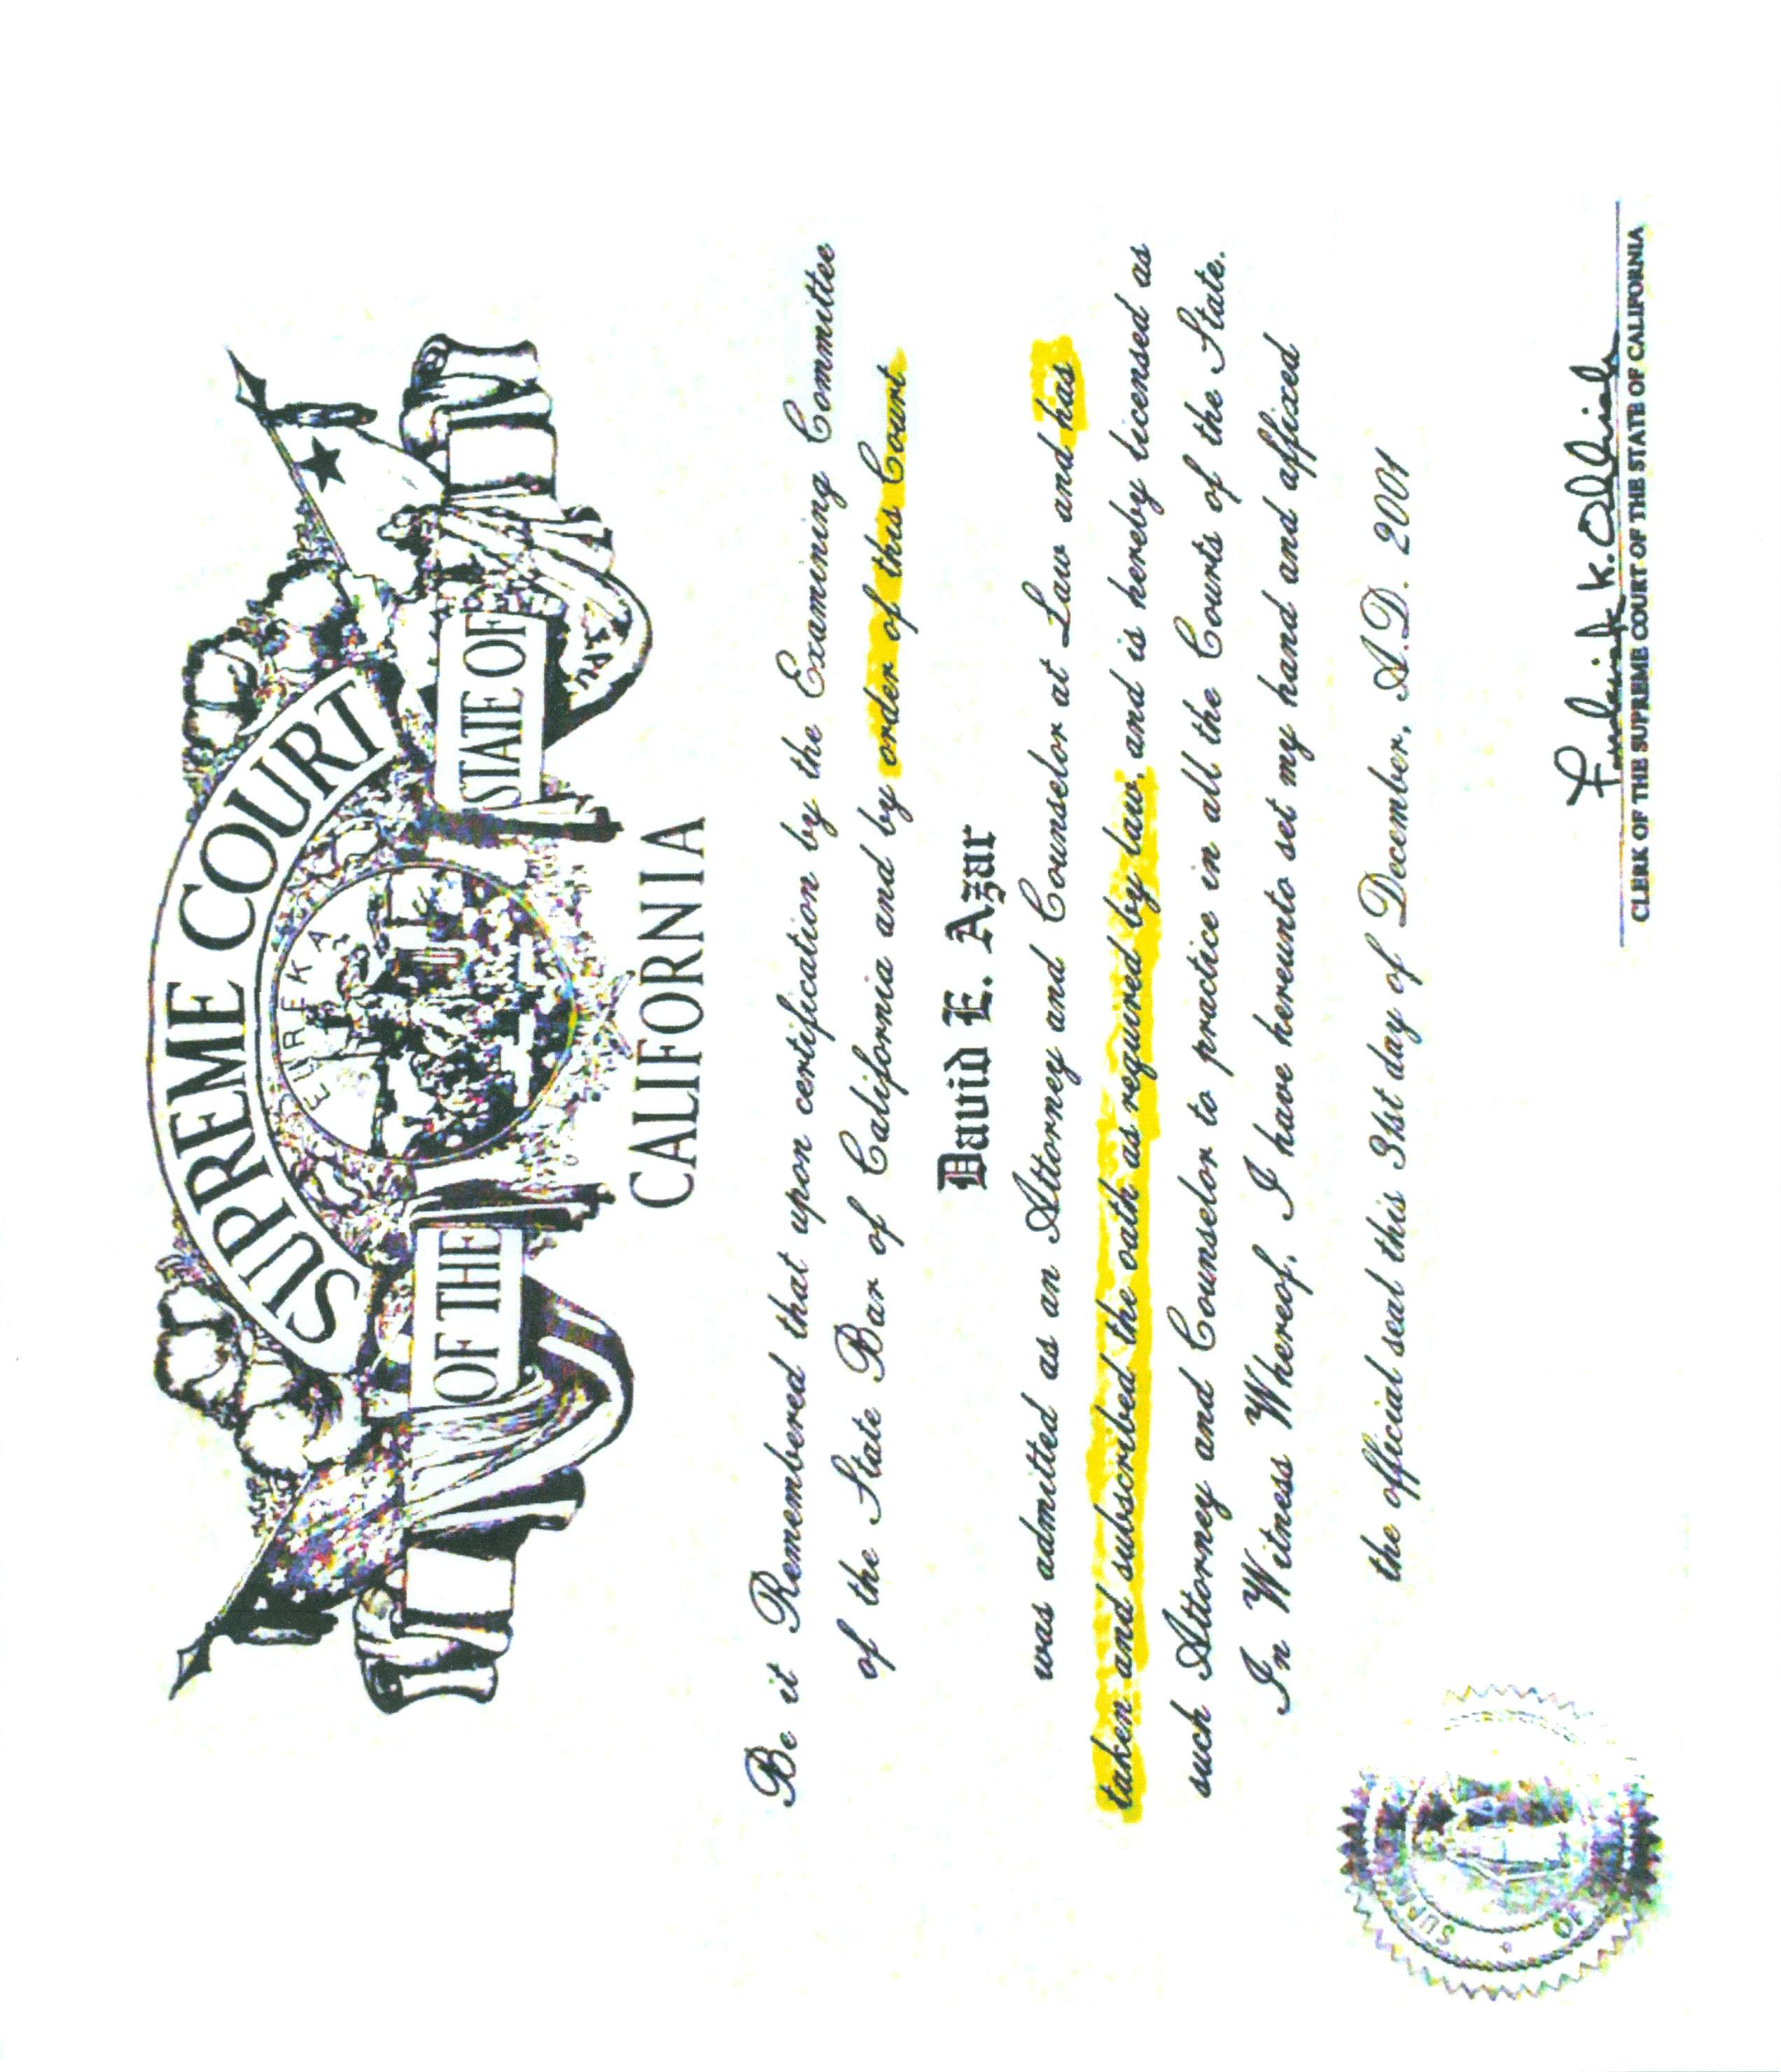 SUPREME COURT
EUREKA
OF THE
STATE OF
CALIFORNIA
Be it Remembered that upon certification by the Examining Committee
of the State Bar of California and by order of this Court
David E. Azar
was admitted as an Attorney and Counselor at Law and has
taken and subscribed the oath as required by law, and is hereby licensed as
such Attorney and Counselor to practice in all the Courts of the State.
In Witness Whereof, I have hereunto set my hand and affixed
the official seal this 31st day of December, A.D. 2001
CLERK OF THE SUPREME COURT OF THE STATE OF CALIFORNIA